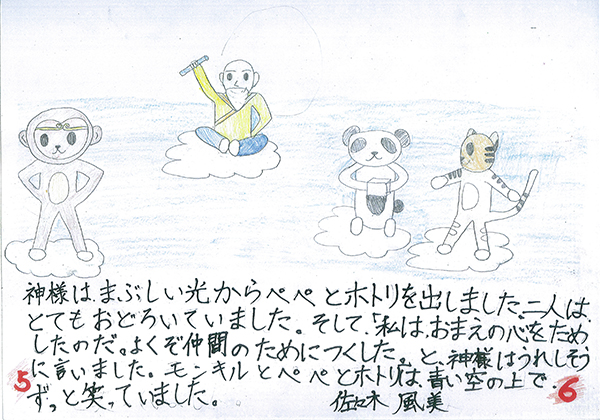 神様は、まぶしい光からペペとホトリを出しました。二人は、
とてもおどろいていました。そして、「私は、おまえの心をため
したのだ。よくぞ仲間のためにつくした。」と、神様はうれしそう
に言いました。モンキルとペペとホトリは、青い空の上で、
ずっと笑っていました。
佐々木 風美
5
6